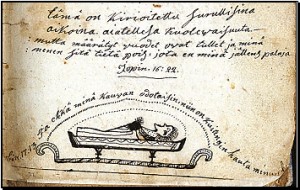 tämä on kirioitettu surullisina
aikoina. aiatellesa kuolevaisuuta.
mutta määrätyt vuodet ovat tullet ja minä
menen sitä tietä pois, jota en minä jällens palaja
Jopin. 16:22.
Ja ehkä minä kauvan odotaisin niin on kuitengin hauta minun
17.13